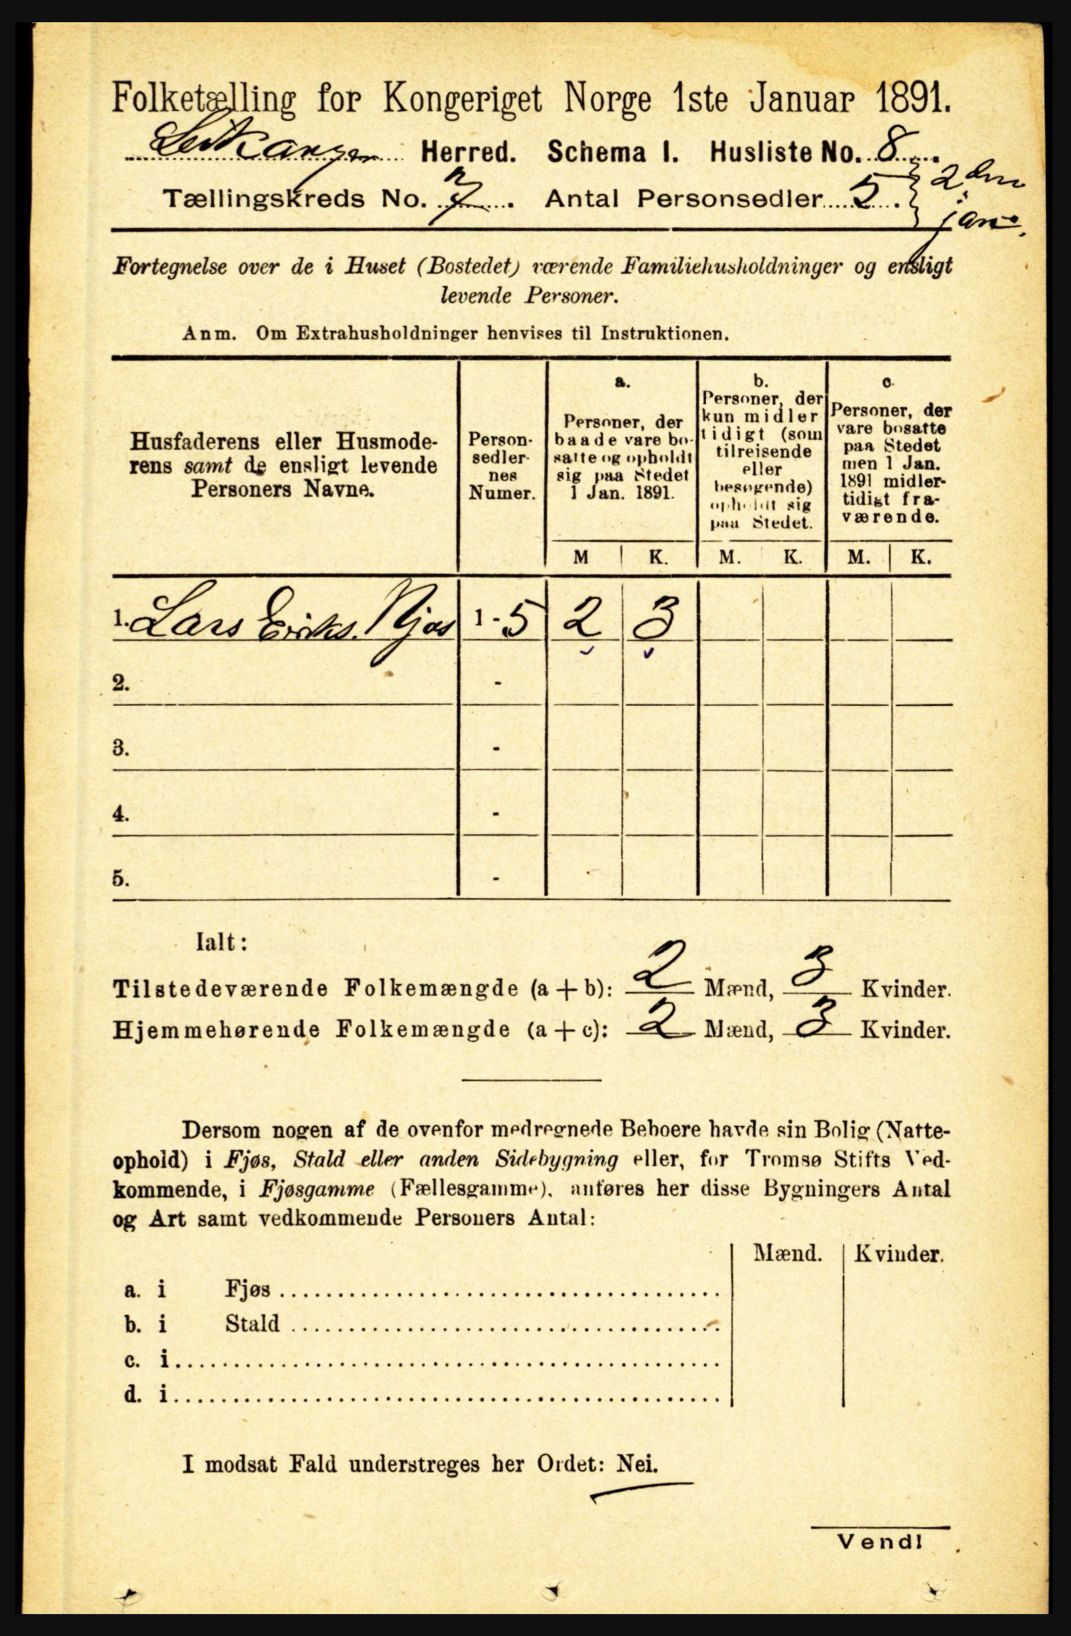 Folketælling for Kongeriget Norge 1ste Januar 1891.
Leikanger Herred. Schema I. Husliste No. 8.
Tællingskreds No. 7. Antal Personsedler 5. } 2den
jan.
Fortegnelse over de i Huset (Bostedet) værende Familiehusholdninger og ensligt
levende Personer.
Anm. Om Extrahusholdninger henvises til Instruktionen.
Husfaderens eller Husmode-
rens samt de ensligt levende
Personers Navne.
Person-
sedler-
nes
Numer.
a.
Personer, der
baade vare bo-
satte og opholdt
sig paa Stedet
1 Jan. 1891.
b.
Personer, der
kun midler
tidigt (som
tilreisende
eller
besøgende)
opholdt sig
paa Stedet.
c.
Personer, der
vare bosatte
paa Stedet
men 1 Jan.
1891 midler-
tidigt fra-
værende.
M K. M. K. M. K.
1. Lars Eriks. Njøs 1 - 5 2 3
2. -
3. -
4. -
5. -
Ialt:
Tilstedeværende Folkemængde (a + b): 2 Mænd, 3 Kvinder.
Hjemmehørende Folkemængde (a + c): 2 Mænd, 3 Kvinder.
Dersom nogen af de ovenfor medregnede Beboere havde sin Bolig (Natte-
ophold) i Fjøs, Stald eller anden Sidebygning eller, for Tromsø Stifts Ved-
kommende, i Fjøsgamme (Fællesgamme), anføres her disse Bygningers Antal
og Art samt vedkommende Personers Antal:
Mænd. Kvinder.
a. i Fjøs
b. i Stald
c. i
d. i
I modsat Fald understreges her Ordet: Nei.
Vend!